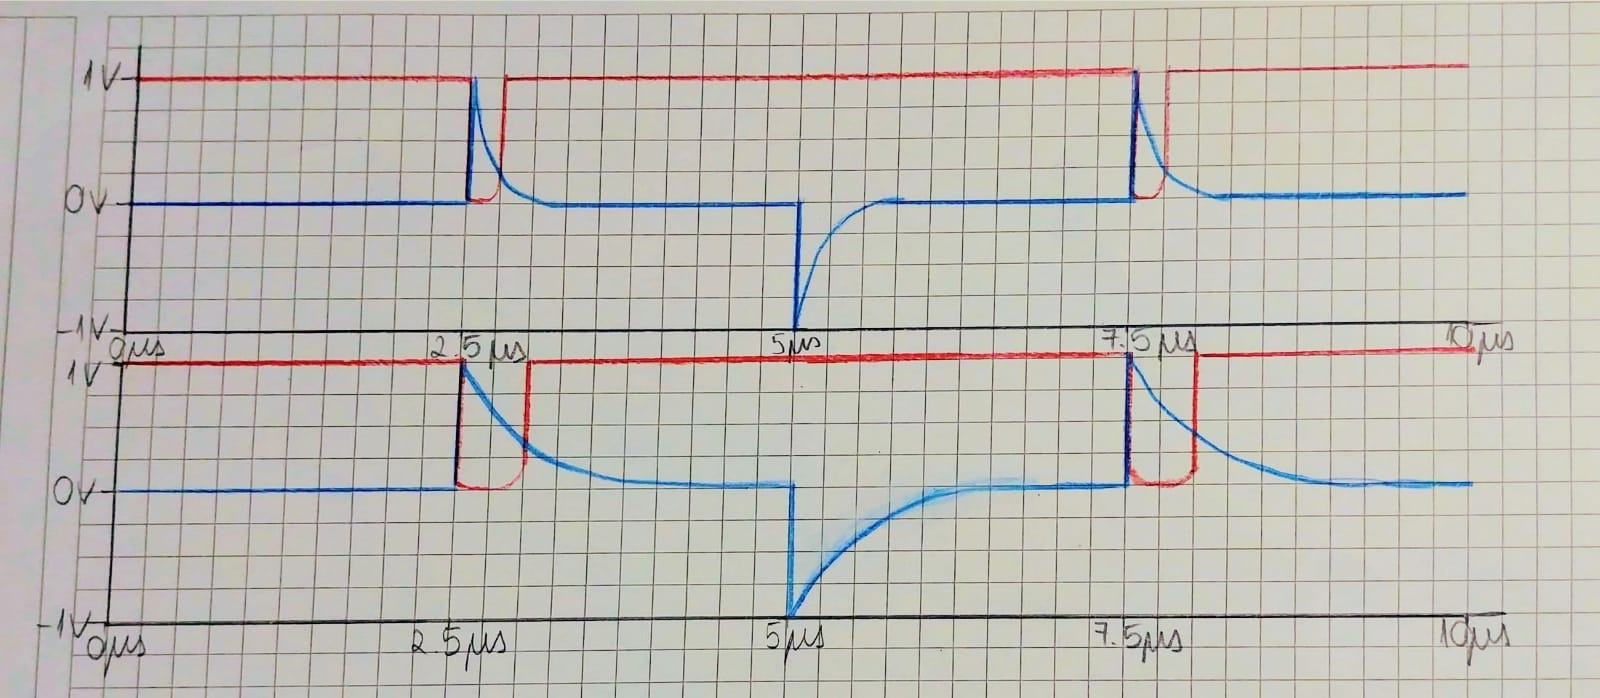 1V
0V
-1V
0μs 2.5μs 5μs 7.5μs 10μs
1V
0V
-1V
0μs 2.5μs 5μs 7.5μs 10μs